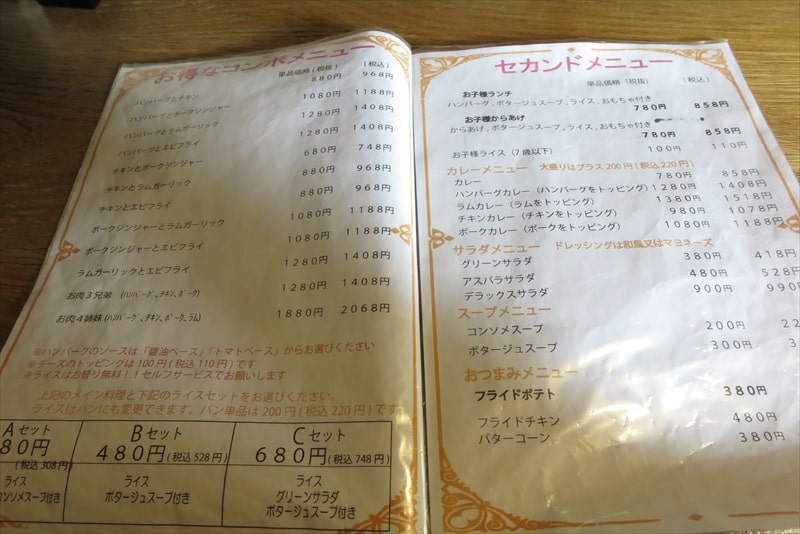 お得なコンボメニュー
単品価格(税抜) (税込)
ハンバーグとチキン 880円 968円
ハンバーグとポークジンジャー 1080円 1188円
ハンバーグとラムガーリック 1280円 1408円
ハンバーグとエビフライ 1280円 1408円
チキンとポークジンジャー 680円 748円
チキンとラムガーリック 880円 968円
チキンとエビフライ 880円 968円
ポークジンジャーとラムガーリック 1080円 1188円
ポークジンジャーとエビフライ 1080円 1188円
ラムガーリックとエビフライ 1280円 1408円
お肉3兄弟 (ハンバーグ、チキン、ポーク) 1280円 1408円
お肉4姉妹 (ハンバーグ、チキン、ポーク、ラム) 1880円 2068円
※ハンバーグのソースは「醤油ベース」「トマトベース」からお選びください
※チーズのトッピングは100円(税込110円)です
※ライスはお替り無料!!セルフサービスでお願いします
上記のメイン料理と下記のライスセットをお選びください。
ライスはパンにも変更できます。パン単品は200円(税込220円)です
Aセット
80円
(税込308円)
ライス
コンソメスープ付き
Bセット
480円(税込528円)
ライス
ポタージュスープ付き
Cセット
680円(税込748円)
ライス
グリーンサラダ
ポタージュスープ付き
セカンドメニュー
単品価格(税抜) (税込)
お子様ランチ
ハンバーグ、ポタージュスープ、ライス、おもちゃ付き
780円 858円
お子様からあげ
からあげ、ポタージュスープ、ライス、おもちゃ付き
780円 858円
お子様ライス(7歳以下) 100円 110円
カレーメニュー 大盛りはプラス200円(税込220円)
カレー 780円 858円
ハンバーグカレー(ハンバーグをトッピング) 1280円 1408円
ラムカレー(ラムをトッピング) 1380円 1518円
チキンカレー(チキンをトッピング) 980円 1078円
ポークカレー(ポークをトッピング) 1080円 1188円
サラダメニュー ドレッシングは和風又はマヨネーズ
グリーンサラダ 380円 418円
アスパラサラダ 480円 528円
デラックスサラダ 900円 990円
スープメニュー
コンソメスープ 200円 22
ポタージュスープ 300円 3
おつまみメニュー
フライドポテト 380円
フライドチキン 480円
バターコーン 380円